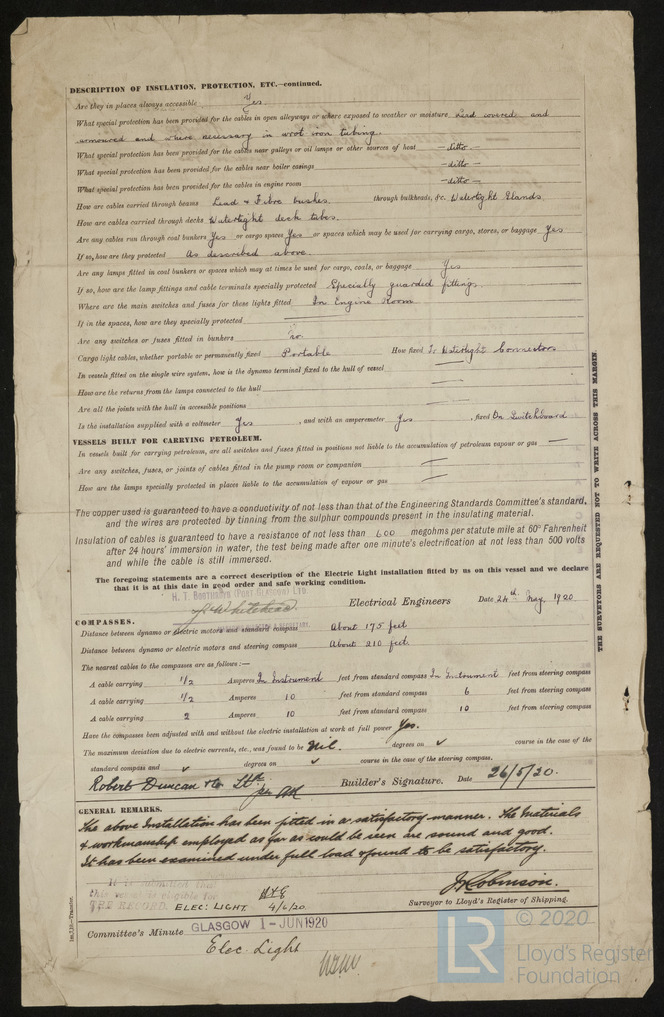 DESCRIPTION OF INSULATION, PROTECTION, ETC.—continued.
Are they in places always accessible Yes.
What special protection has been provided for the cables in open alleyways or where exposed to weather or moisture Lead covered and
armoured and where necessary in wrot iron tubing.
What special protection has been provided for the cables near galleys or oil lamps or other sources of heat — ditto —
What special protection has been provided for the cables near boiler casings — ditto —
What special protection has been provided for the cables in engine room — ditto —
How are cables carried through beams Lead & Fibre bushes through bulkheads, &c. Watertight Glands.
How are cables carried through decks Watertight deck tubes.
Are any cables run through coal bunkers Yes or cargo spaces Yes or spaces which may be used for carrying cargo, stores, or baggage Yes
If so, how are they protected As described above.
Are any lamps fitted in coal bunkers or spaces which may at times be used for cargo, coals, or baggage Yes
If so, how are the lamp fittings and cable terminals specially protected Specially guarded fittings.
Where are the main switches and fuses for these lights fitted In Engine Room
If in the spaces, how are they specially protected
Are any switches or fuses fitted in bunkers No
Cargo light cables, whether portable or permanently fixed Portable How fixed To Watertight Connectors
In vessels fitted on the single wire system, how is the dynamo terminal fixed to the hull of vessel —
How are the returns from the lamps connected to the hull —
Are all the joints with the hull in accessible positions —
Is the installation supplied with a voltmeter Yes , and with an amperemeter Yes , fixed On Switchboard
VESSELS BUILT FOR CARRYING PETROLEUM.
In vessels built for carrying petroleum, are all switches and fuses fitted in positions not liable to the accumulation of petroleum vapour or gas —
Are any switches, fuses, or joints of cables fitted in the pump room or companion —
How are the lamps specially protected in places liable to the accumulation of vapour or gas —
The copper used is guaranteed to have a conductivity of not less than that of the Engineering Standards Committee's standard,
and the wires are protected by tinning from the sulphur compounds present in the insulating material.
Insulation of cables is guaranteed to have a resistance of not less than 600 megohms per statute mile at 60° Fahrenheit
after 24 hours' immersion in water, the test being made after one minute's electrification at not less than 500 volts
and while the cable is still immersed.
The foregoing statements are a correct description of the Electric Light installation fitted by us on this vessel and we declare
that it is at this date in good order and safe working condition.
H. T. Boothroyd (Port Glasgow) Ltd.
J. Whitehead Electrical Engineers Date 24th May 1920
SECRETARY.
COMPASSES.
Distance between dynamo or electric motors and standard compass About 175 feet
Distance between dynamo or electric motors and steering compass About 210 feet.
The nearest cables to the compasses are as follows:—
A cable carrying 1/2 Amperes In Instrument feet from standard compass In Instrument feet from steering compass
A cable carrying 1/2 Amperes 10 feet from standard compass 6 feet from steering compass
A cable carrying 2 Amperes 10 feet from standard compass 10 feet from steering compass
Have the compasses been adjusted with and without the electric installation at work at full power Yes.
The maximum deviation due to electric currents, etc., was found to be Nil. degrees on ✓ course in the case of the
standard compass and ✓ degrees on ✓ course in the case of the steering compass.
Robert Duncan & Co Ltd. per Builder's Signature. Date 26/5/20.
GENERAL REMARKS.
The above Installation has been fitted in a satisfactory manner. The Materials
& workmanship employed as far as could be seen are sound and good.
It has been examined under full load & found to be satisfactory.
It is submitted that
this vessel is eligible for
THE RECORD. ELEC: LIGHT. 4/6/20.
J. Robinson.
Surveyor to Lloyd's Register of Shipping.
Committee's Minute GLASGOW 1-JUN 1920
Elec. Light
THE SURVEYORS ARE REQUESTED NOT TO WRITE ACROSS THIS MARGIN.
LR © 2020
Lloyd's Register
Foundation